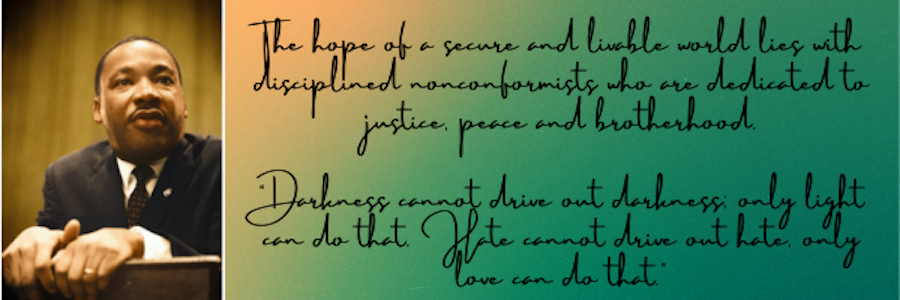 The hope of a secure and livable world lies with
disciplined nonconformists who are dedicated to
justice, peace and brotherhood.
"Darkness cannot drive out darkness; only light
can do that. Hate cannot drive out hate, only
love can do that."